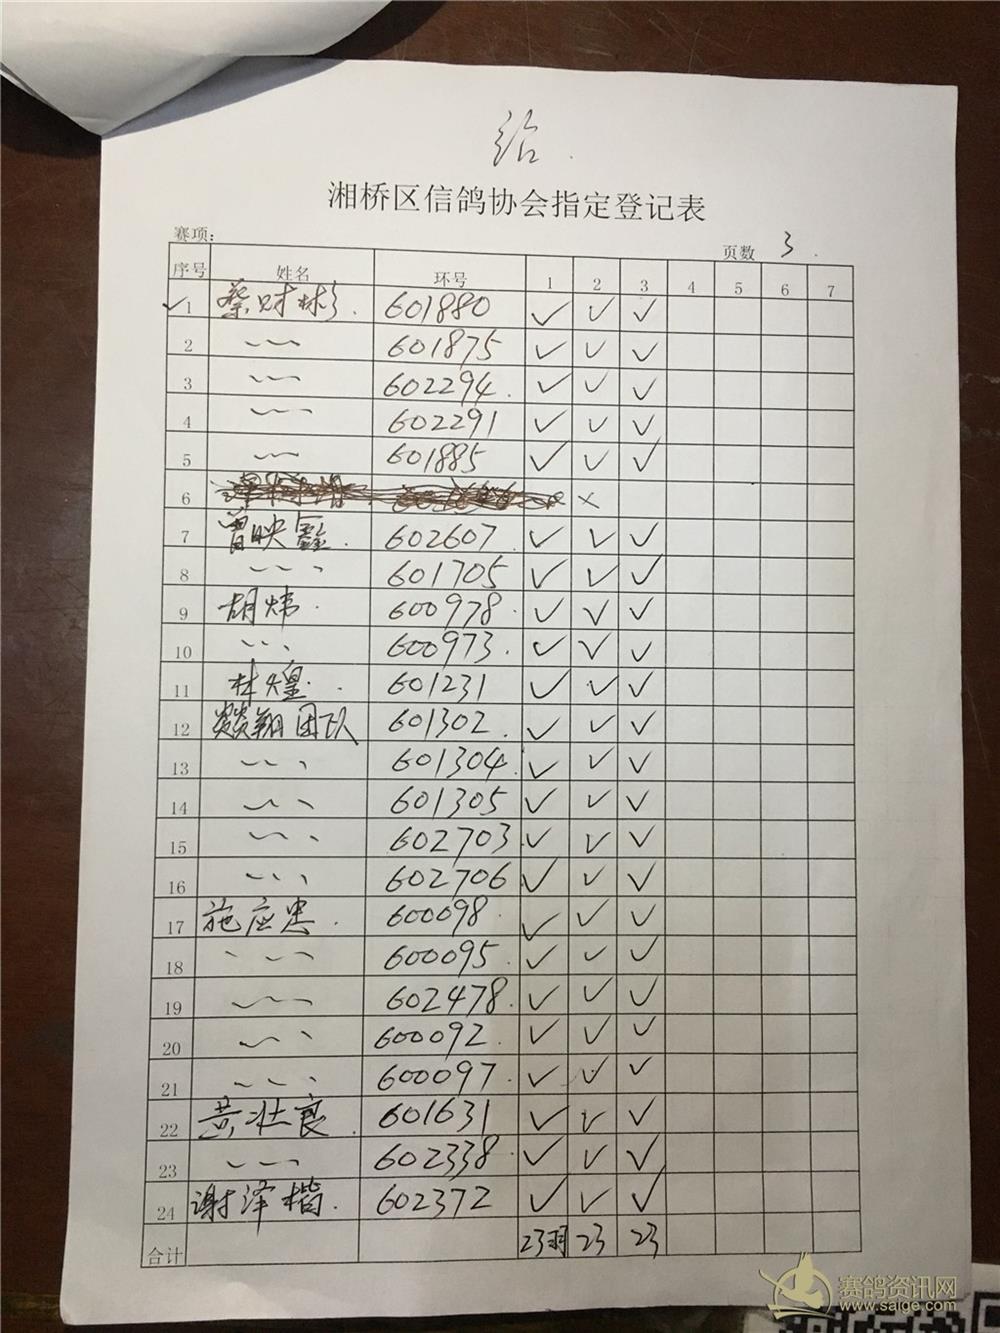 给.
湘桥区信鸽协会指定登记表
赛项: 页数 3.
序号 姓名 环号 1 2 3 4 5 6 7
✓1 蔡财彬. 601880 ✓ ✓ ✓
2 601875 ✓ ✓ ✓
3 602294. ✓ ✓ ✓
4 602291 ✓ ✓ ✓
5 601885 ✓ ✓ ✓
6 ×
7 曾映鑫. 602607. ✓ ✓ ✓
8 601705 ✓ ✓ ✓
9 胡炜. 600978. ✓ ✓ ✓
10 600973. ✓ ✓ ✓
11 林煌. 601231 ✓ ✓ ✓
12 翔团队 601302. ✓ ✓ ✓
13 601304. ✓ ✓ ✓
14 601305 ✓ ✓ ✓
15 602703 ✓ ✓ ✓
16 602706 ✓ ✓ ✓
17 施应忠. 600098. ✓ ✓ ✓
18 600095. ✓ ✓ ✓
19 602478. ✓ ✓ ✓
20 600092. ✓ ✓ ✓
21 600097. ✓ ✓ ✓
22 黄壮良. 601631 ✓ ✓ ✓
23 602338. ✓ ✓ ✓
24 谢泽楷. 602372 ✓ ✓ ✓
合计 23羽 23 23
赛鸽资讯网
www.saige.com